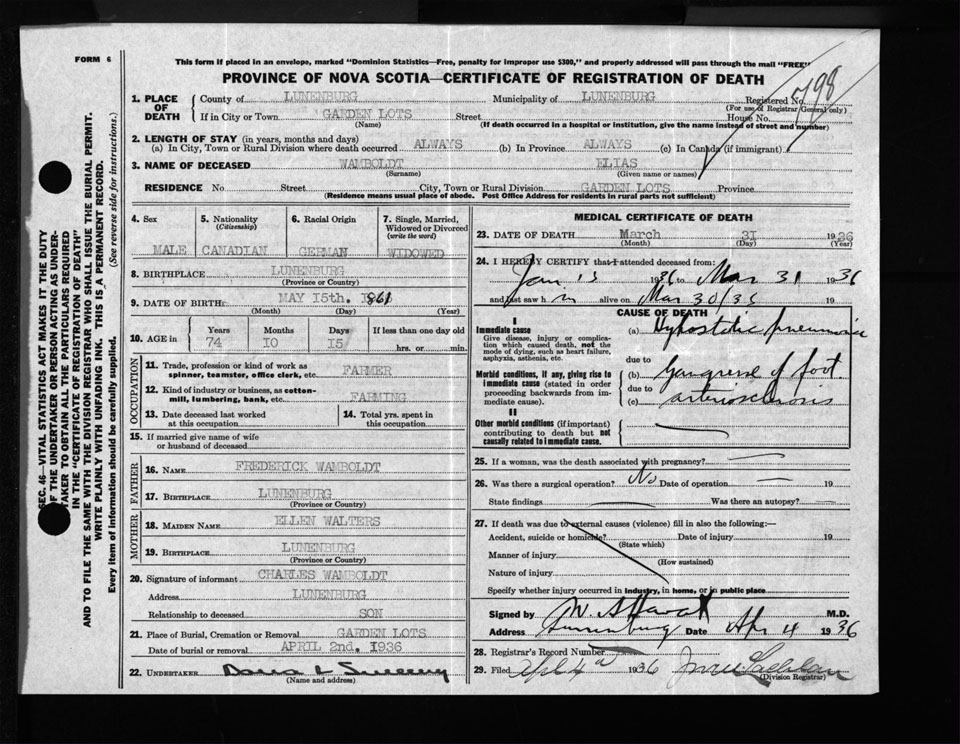 FORM 6
This form if placed in an envelope, marked "Dominion Statistics—Free, penalty for improper use $300," and properly addressed will pass through the mail "FREE"
PROVINCE OF NOVA SCOTIA—CERTIFICATE OF REGISTRATION OF DEATH
SEC. 46—VITAL STATISTICS ACT MAKES IT THE DUTY
OF THE UNDERTAKER OR PERSON ACTING AS UNDER-
TAKER TO OBTAIN ALL THE PARTICULARS REQUIRED
IN THE "CERTIFICATE OF REGISTRATION OF DEATH"
AND TO FILE THE SAME WITH THE DIVISION REGISTRAR WHO SHALL ISSUE THE BURIAL PERMIT.
WRITE PLAINLY WITH UNFADING INK. THIS IS A PERMANENT RECORD.
Every item of Information should be carefully supplied. (See reverse side for instructions.)
1. PLACE OF DEATH County of LUNENBURG Municipality of LUNENBURG Registered No. 798
(For use of Registrar General only)
If in City or Town GARDEN LOTS Street House No.
(Name) (If death occurred in a hospital or institution, give the name instead of street and number)
2. LENGTH OF STAY (in years, months and days)
(a) In City, Town or Rural Division where death occurred ALWAYS (b) In Province ALWAYS (c) In Canada (if immigrant)
3. NAME OF DECEASED WAMBOLDT ELIAS
(Surname) (Given name or names)
RESIDENCE No Street City, Town or Rural Division GARDEN LOTS Province
(Residence means usual place of abode. Post Office Address for residents in rural parts not sufficient)
4. Sex MALE
5. Nationality (Citizenship) CANADIAN
6. Racial Origin GERMAN
7. Single, Married, Widowed or Divorced (write the word) WIDOWED
8. BIRTHPLACE LUNENBURG
(Province or Country)
9. DATE OF BIRTH MAY 15th. 1861
(Month) (Day) (Year)
10. AGE in Years 74 Months 10 Days 15 If less than one day old hrs. or min.
OCCUPATION
11. Trade, profession or kind of work as spinner, teamster, office clerk, etc. FARMER
12. Kind of industry or business, as cotton-mill, lumbering, bank, etc. FARMING
13. Date deceased last worked at this occupation
14. Total yrs. spent in this occupation
15. If married give name of wife or husband of deceased
FATHER
16. NAME FREDERICK WAMBOLDT
17. BIRTHPLACE LUNENBURG
(Province or Country)
MOTHER
18. MAIDEN NAME ELLEN WALTERS
19. BIRTHPLACE LUNENBURG
(Province or Country)
20. Signature of informant CHARLES WAMBOLDT
Address LUNENBURG
Relationship to deceased SON
21. Place of Burial, Cremation or Removal GARDEN LOTS
Date of burial or removal APRIL 2nd, 1936
22. UNDERTAKER
(Name and address)
MEDICAL CERTIFICATE OF DEATH
23. DATE OF DEATH March 31 1936
(Month) (Day) (Year)
24. I HEREBY CERTIFY that I attended deceased from:
Jan 13 1936 to Mar 31 1936
and last saw h m alive on Mar 30/36 19
CAUSE OF DEATH
I
Immediate cause
Give disease, injury or complication which caused death, not the mode of dying, such as heart failure, asphyxia, asthenia, etc.
(a) Hypostatic pneumonia
due to
Morbid conditions, if any, giving rise to immediate cause (stated in order proceeding backwards from immediate cause).
(b) Gangrene of foot
due to
(c) arteriosclerosis
II
Other morbid conditions (if important) contributing to death but not causally related to immediate cause.
25. If a woman, was the death associated with pregnancy?
26. Was there a surgical operation? No Date of operation 19
State findings Was there an autopsy?
27. If death was due to external causes (violence) fill in also the following:—
Accident, suicide or homicide? Date of injury 19
(State which)
Manner of injury
(How sustained)
Nature of injury
Specify whether injury occurred in industry, in home, or in public place
Signed by M.D.
Address Lunenburg Date Apr 4 1936
28. Registrar's Record Number
29. Filed April 4 1936
(Division Registrar)